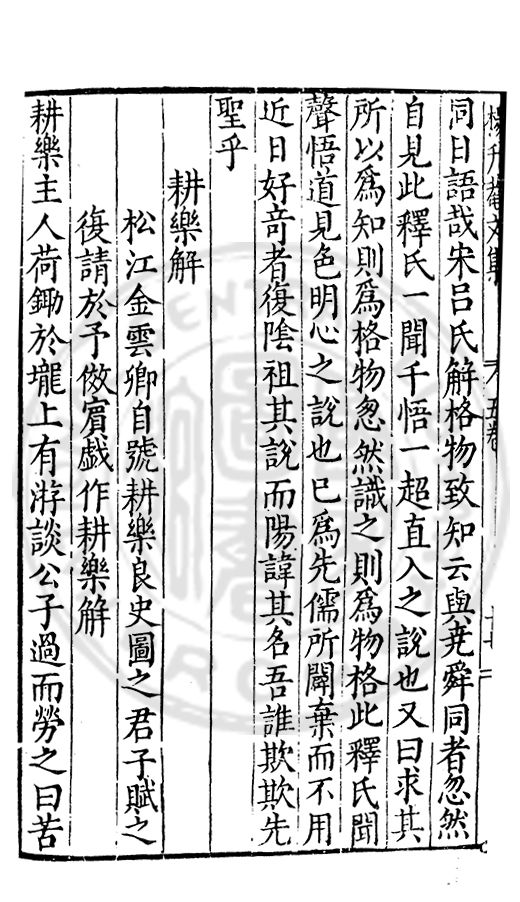 楊升菴文集 五卷
同日語哉宋吕氏解格物致知云與尭舜同者忽然
自見此釋氏一聞千悟一超直入之說也又曰求其
所以爲知則爲格物忽然識之則爲物格此釋氏聞
聲悟道見色明心之說也已爲先儒所闢棄而不用
近日好竒者復陰祖其說而陽諱其名吾誰欺欺先
聖乎
耕樂解
松江金雲卿自號耕樂良史圖之君子賦之
復請於予傚賓戯作耕樂解
耕樂主人荷鋤於壠上有游談公子過而勞之曰苦